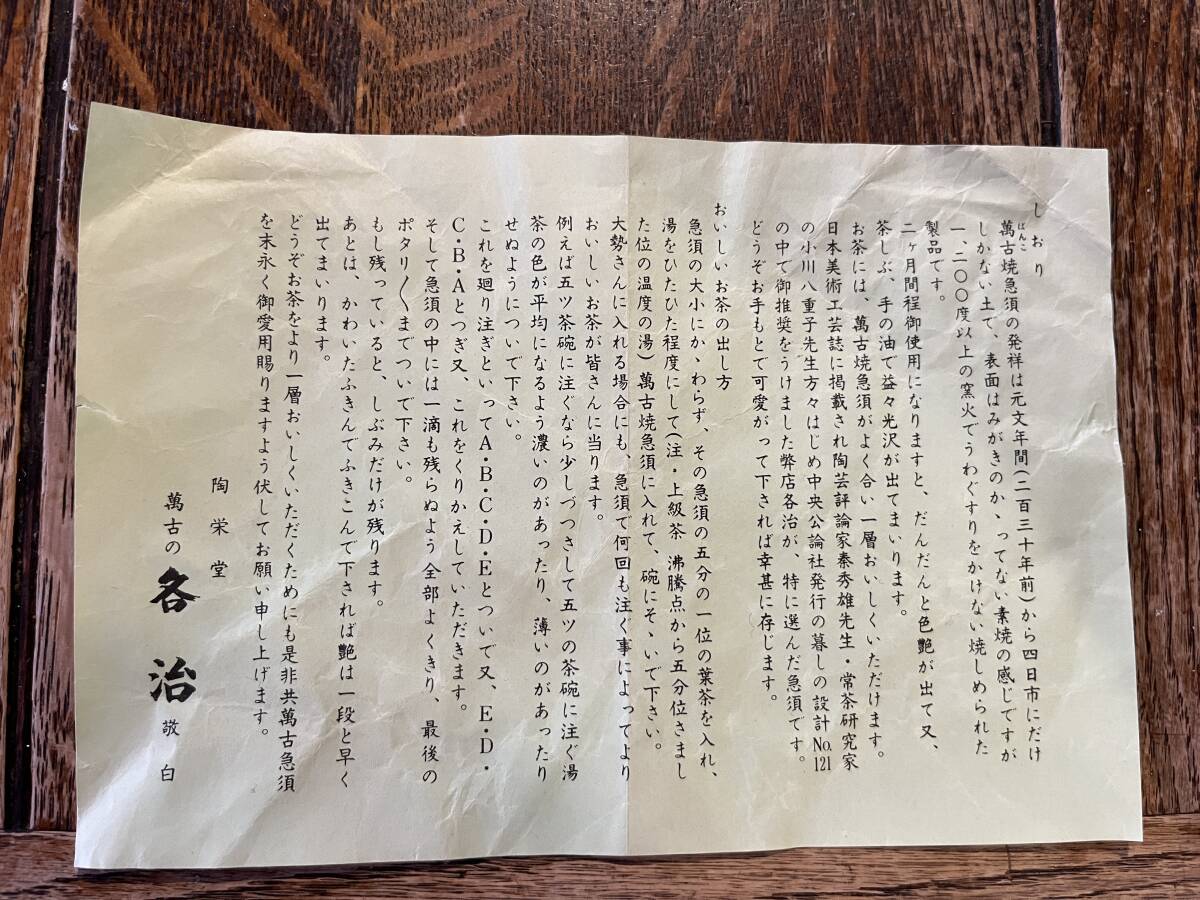 しおり
萬古焼急須の発祥は元文年間(二百三十年前)から四日市にだけ
ばんこ
しかない土で、表面はみがきのかゝってない素焼の感じですが
一、二〇〇度以上の窯火でうわぐすりをかけない焼しめられた
製品です。
二ヶ月間程御使用になりますと、だんだんと色艶が出て又、
茶しぶ、手の油で益々光沢が出てまいります。
お茶には、萬古焼急須がよく合い一層おいしくいただけます。
日本美術工芸誌に掲載され陶芸評論家秦秀雄先生・常茶研究家
の小川八重子先生方々はじめ中央公論社発行の暮しの設計No.121
の中で御推奨をうけました弊店各治が、特に選んだ急須です。
どうぞお手もとで可愛がって下されば幸甚に存じます。
おいしいお茶の出し方
急須の大小にかゝわらず、その急須の五分の一位の葉茶を入れ、
湯をひたひた程度にして(注・上級茶 沸騰点から五分位さまし
た位の温度の湯)萬古焼急須に入れて、碗にそゝいで下さい。
大勢さんに入れる場合にも、急須で何回も注ぐ事によってより
おいしいお茶が皆さんに当ります。
例えば五ツ茶碗に注ぐなら少しづつさして五ツの茶碗に注ぐ湯
茶の色が平均になるよう濃いのがあったり、薄いのがあったり
せぬようについで下さい。
これを廻り注ぎといってA・B・C・D・Eとついで又、E・D・
C・B・Aとつぎ又、これをくりかえしていただきます。
そして急須の中には一滴も残らぬよう全部よくきり、最後の
ポタリ〳〵までついで下さい。
もし残っていると、しぶみだけが残ります。
あとは、かわいたふきんでふきこんで下されば艶は一段と早く
出てまいります。
どうぞお茶をより一層おいしくいただくためにも是非共萬古急須
を末永く御愛用賜りますよう伏してお願い申し上げます。
陶栄堂
萬古の 各治 敬白